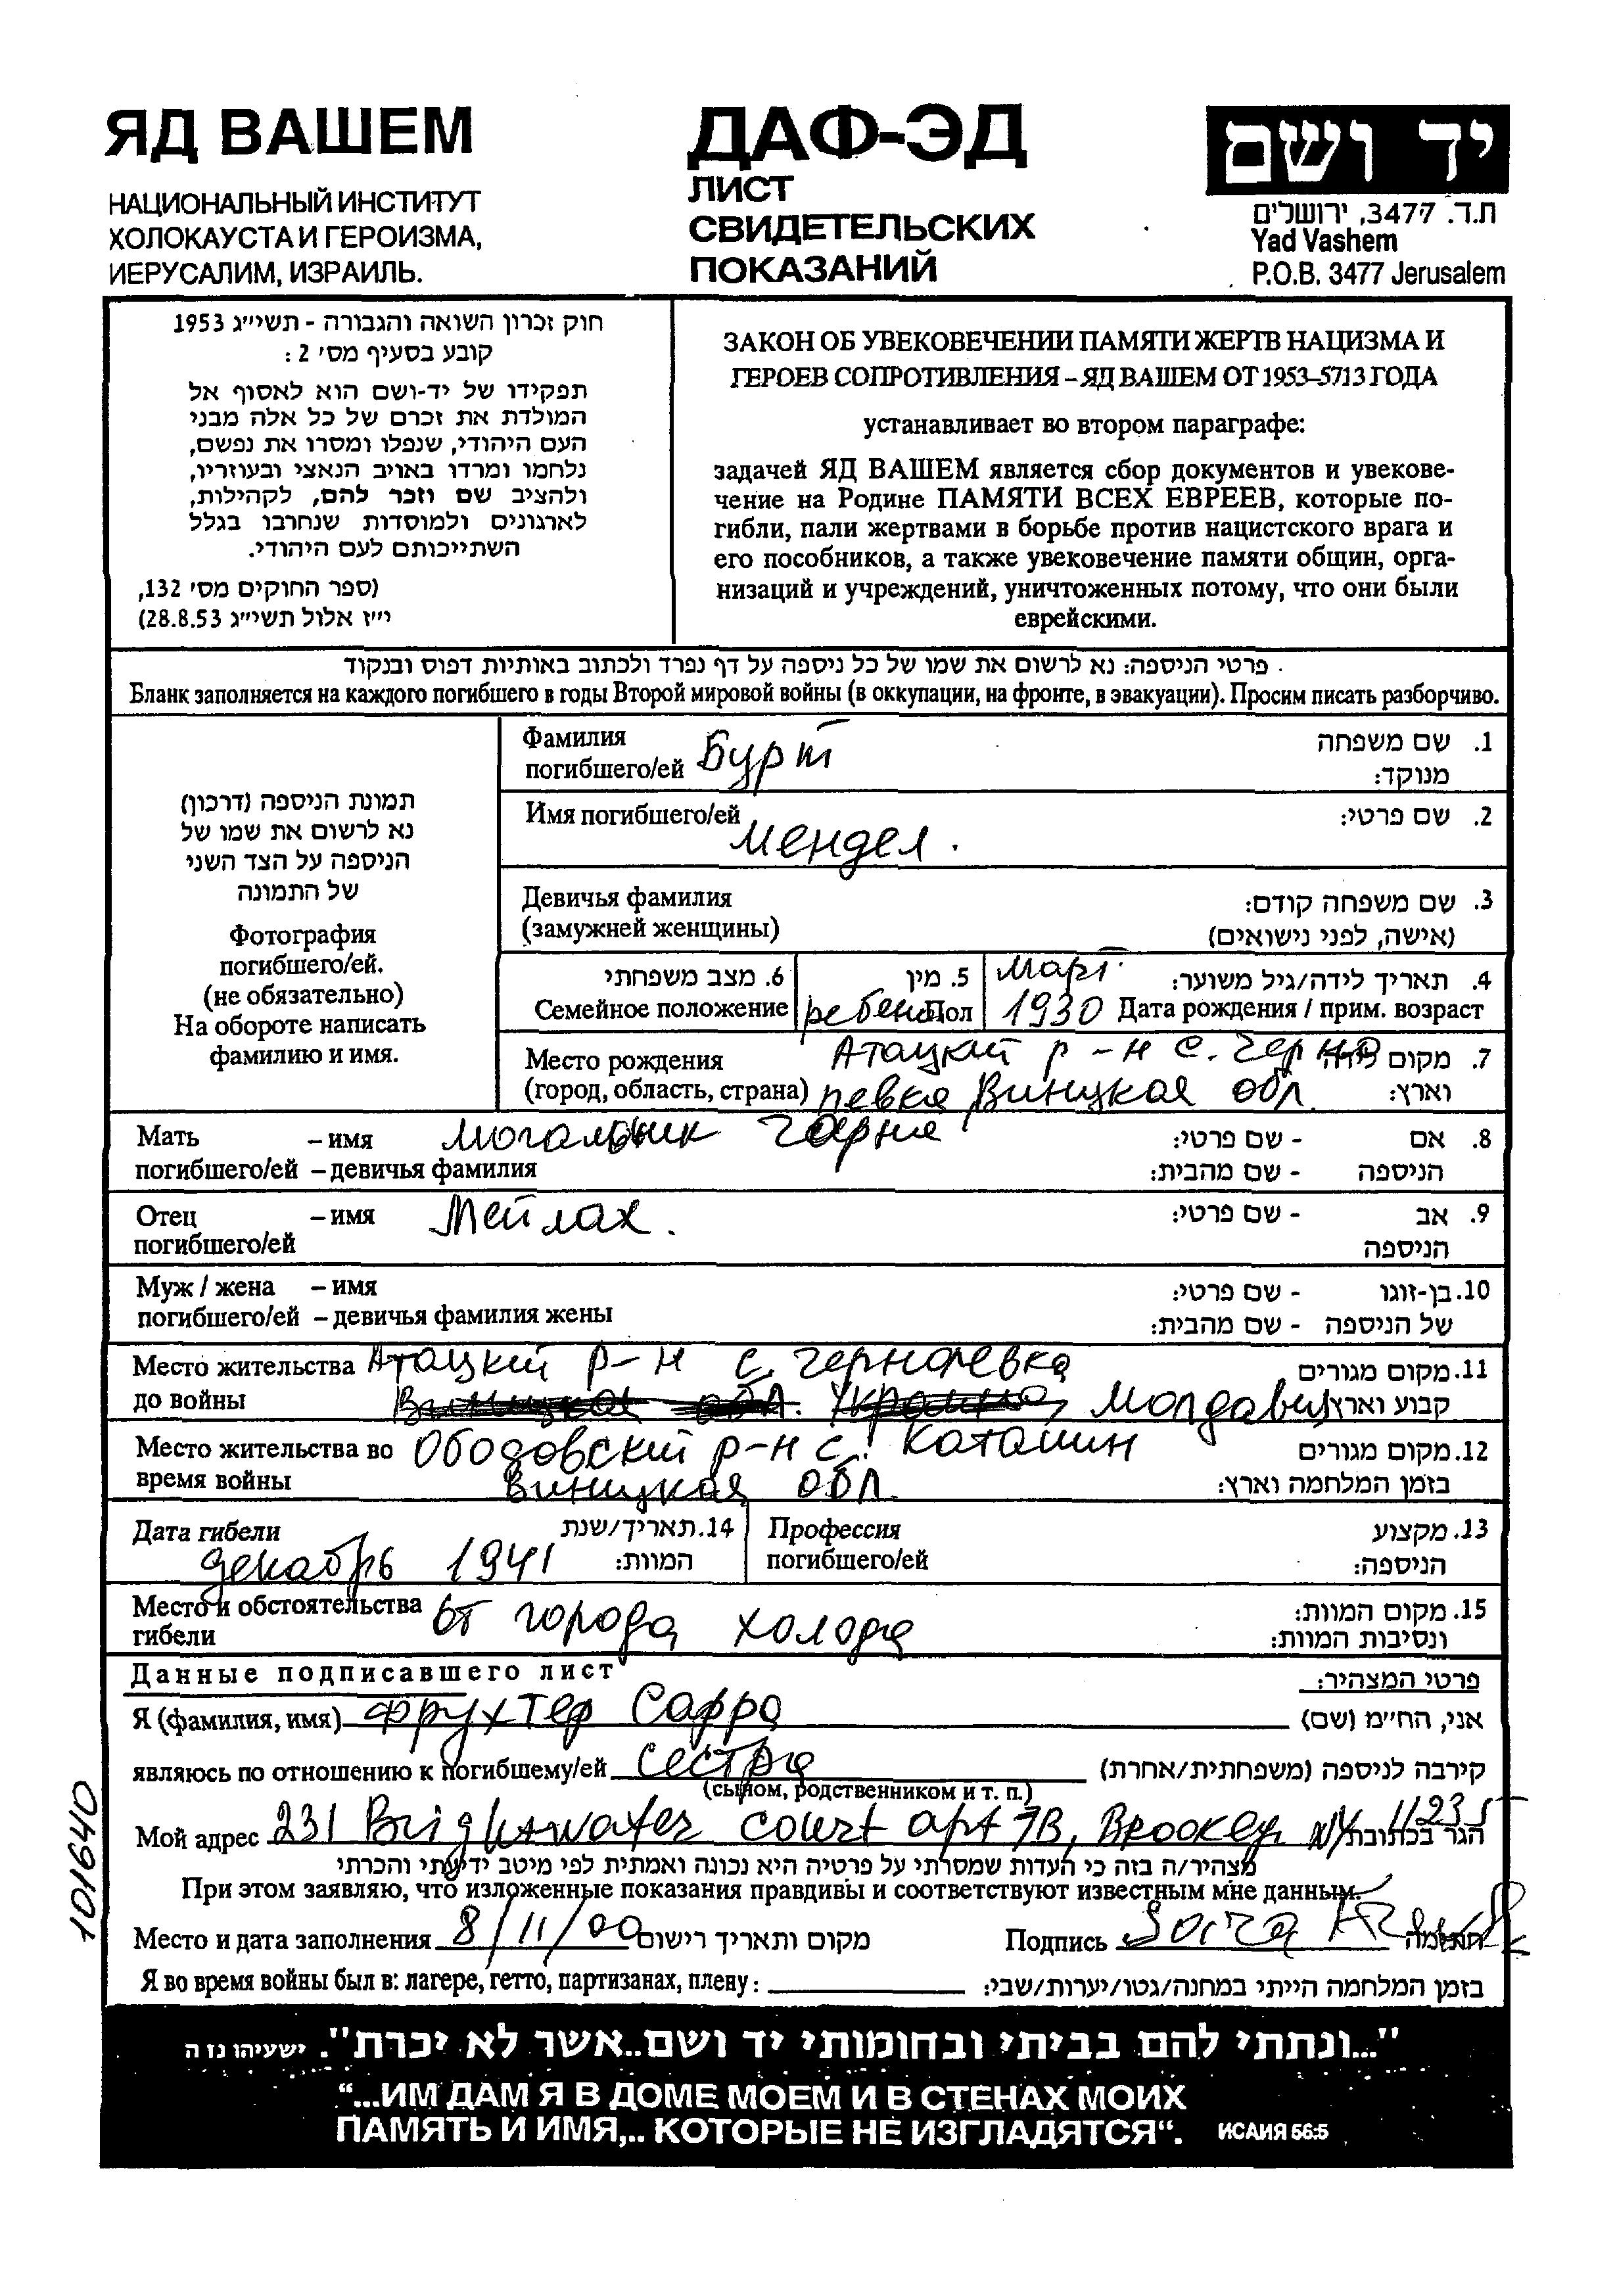 ЯД ВАШЕМ
НАЦИОНАЛЬНЫЙ ИНСТИТУТ
ХОЛОКАУСТА И ГЕРОИЗМА,
ИЕРУСАЛИМ, ИЗРАИЛЬ.
ДАФ-ЭД
ЛИСТ
СВИДЕТЕЛЬСКИХ
ПОКАЗАНИЙ
יד ושם
ת.ד. 3477, ירושלים
Yad Vashem
P.O.B. 3477 Jerusalem
חוק זכרון השואה והגבורה - תשי״ג 1953
קובע בסעיף מס׳ 2 :
תפקידו של יד-ושם הוא לאסוף אל
המולדת את זכרם של כל אלה מבני
העם היהודי, שנפלו ומסרו את נפשם,
נלחמו ומרדו באויב הנאצי ובעוזריו,
ולהציב שם וזכר להם, לקהילות,
לארגונים ולמוסדות שנחרבו בגלל
השתייכותם לעם היהודי.
(ספר החוקים מס׳ 132,
י״ז אלול תשי״ג 28.8.53)
ЗАКОН ОБ УВЕКОВЕЧЕНИИ ПАМЯТИ ЖЕРТВ НАЦИЗМА И
ГЕРОЕВ СОПРОТИВЛЕНИЯ – ЯД ВАШЕМ ОТ 1953–5713 ГОДА
устанавливает во втором параграфе:
задачей ЯД ВАШЕМ является сбор документов и увекове-
чение на Родине ПАМЯТИ ВСЕХ ЕВРЕЕВ, которые по-
гибли, пали жертвами в борьбе против нацистского врага и
его пособников, а также увековечение памяти общин, орга-
низаций и учреждений, уничтоженных потому, что они были
еврейскими.
פרטי הניספה: נא לרשום את שמו של כל ניספה על דף נפרד ולכתוב באותיות דפוס ובנקוד
Бланк заполняется на каждого погибшего в годы Второй мировой войны (в оккупации, на фронте, в эвакуации). Просим писать разборчиво.
תמונת הניספה (דרכון)
נא לרשום את שמו של
הניספה על הצד השני
של התמונה
Фотография
погибшего/ей.
(не обязательно)
На обороте написать
фамилию и имя.
Фамилия
погибшего/ей Бурт
1. שם משפחה
מנוקד:
Имя погибшего/ей
Мендел.
2. שם פרטי:
Девичья фамилия
(замужней женщины)
3. שם משפחה קודם:
(אישה, לפני נישואים)
6. מצב משפחתי
Семейное положение
5. מין
Пол
4. תאריך לידה/גיל משוער: март
1930 Дата рождения / прим. возраст
Место рождения
(город, область, страна)
Атацкий р-н с. Черно
певка Виницкая обл.
7. מקום לידה
וארץ:
Мать – имя Могальник
погибшего/ей – девичья фамилия
8. אם - שם פרטי:
הניספה - שם מהבית:
Отец – имя Мейлах.
погибшего/ей
9. אב - שם פרטי:
הניספה
Муж / жена – имя
погибшего/ей – девичья фамилия жены
10. בן-זוגו - שם פרטי:
של הניספה - שם מהבית:
Место жительства Атацкий р-н с. Чернолевка
до войны Виницкая обл. Украина, Молдавия
11. מקום מגורים
קבוע וארץ
Место жительства во Ободовский р-н с. Каташин
время войны Виницкая обл.
12. מקום מגורים
בזמן המלחמה וארץ:
Дата гибели
декабрь 1941
14. תאריך/שנת
המוות:
Профессия
погибшего/ей
13. מקצוע
הניספה:
Место и обстоятельства от города холода
гибели
15. מקום המוות:
ונסיבות המוות:
Данные подписавшего лист פרטי המצהיר:
Я (фамилия, имя) Фрухтер Сарра אני, הח״מ (שם)
являюсь по отношению к погибшему/ей сестра קירבה לניספה (משפחתית/אחרת)
(сыном, родственником и т. п.)
Мой адрес 231 Brightwater court apt 7B, NY 11235 הגר בכתובת
מצהיר/ה בזה כי העדות שמסרתי על פרטיה היא נכונה ואמתית לפי מיטב ידיעתי והכרתי
При этом заявляю, что изложенные показания правдивы и соответствуют известным мне данным.
Место и дата заполнения 8/11/00 מקום ותאריך רישום Подпись חתימה
Я во время войны был в: лагере, гетто, партизанах, плену: בזמן המלחמה הייתי במחנה/גטו/יערות/שבי:
"...ונתתי להם בביתי ובחומותי יד ושם..אשר לא יכרת". ישעיהו נו ה
“...ИМ ДАМ Я В ДОМЕ МОЕМ И В СТЕНАХ МОИХ
ПАМЯТЬ И ИМЯ,.. КОТОРЫЕ НЕ ИЗГЛАДЯТСЯ“. ИСАИЯ 56:5
101640